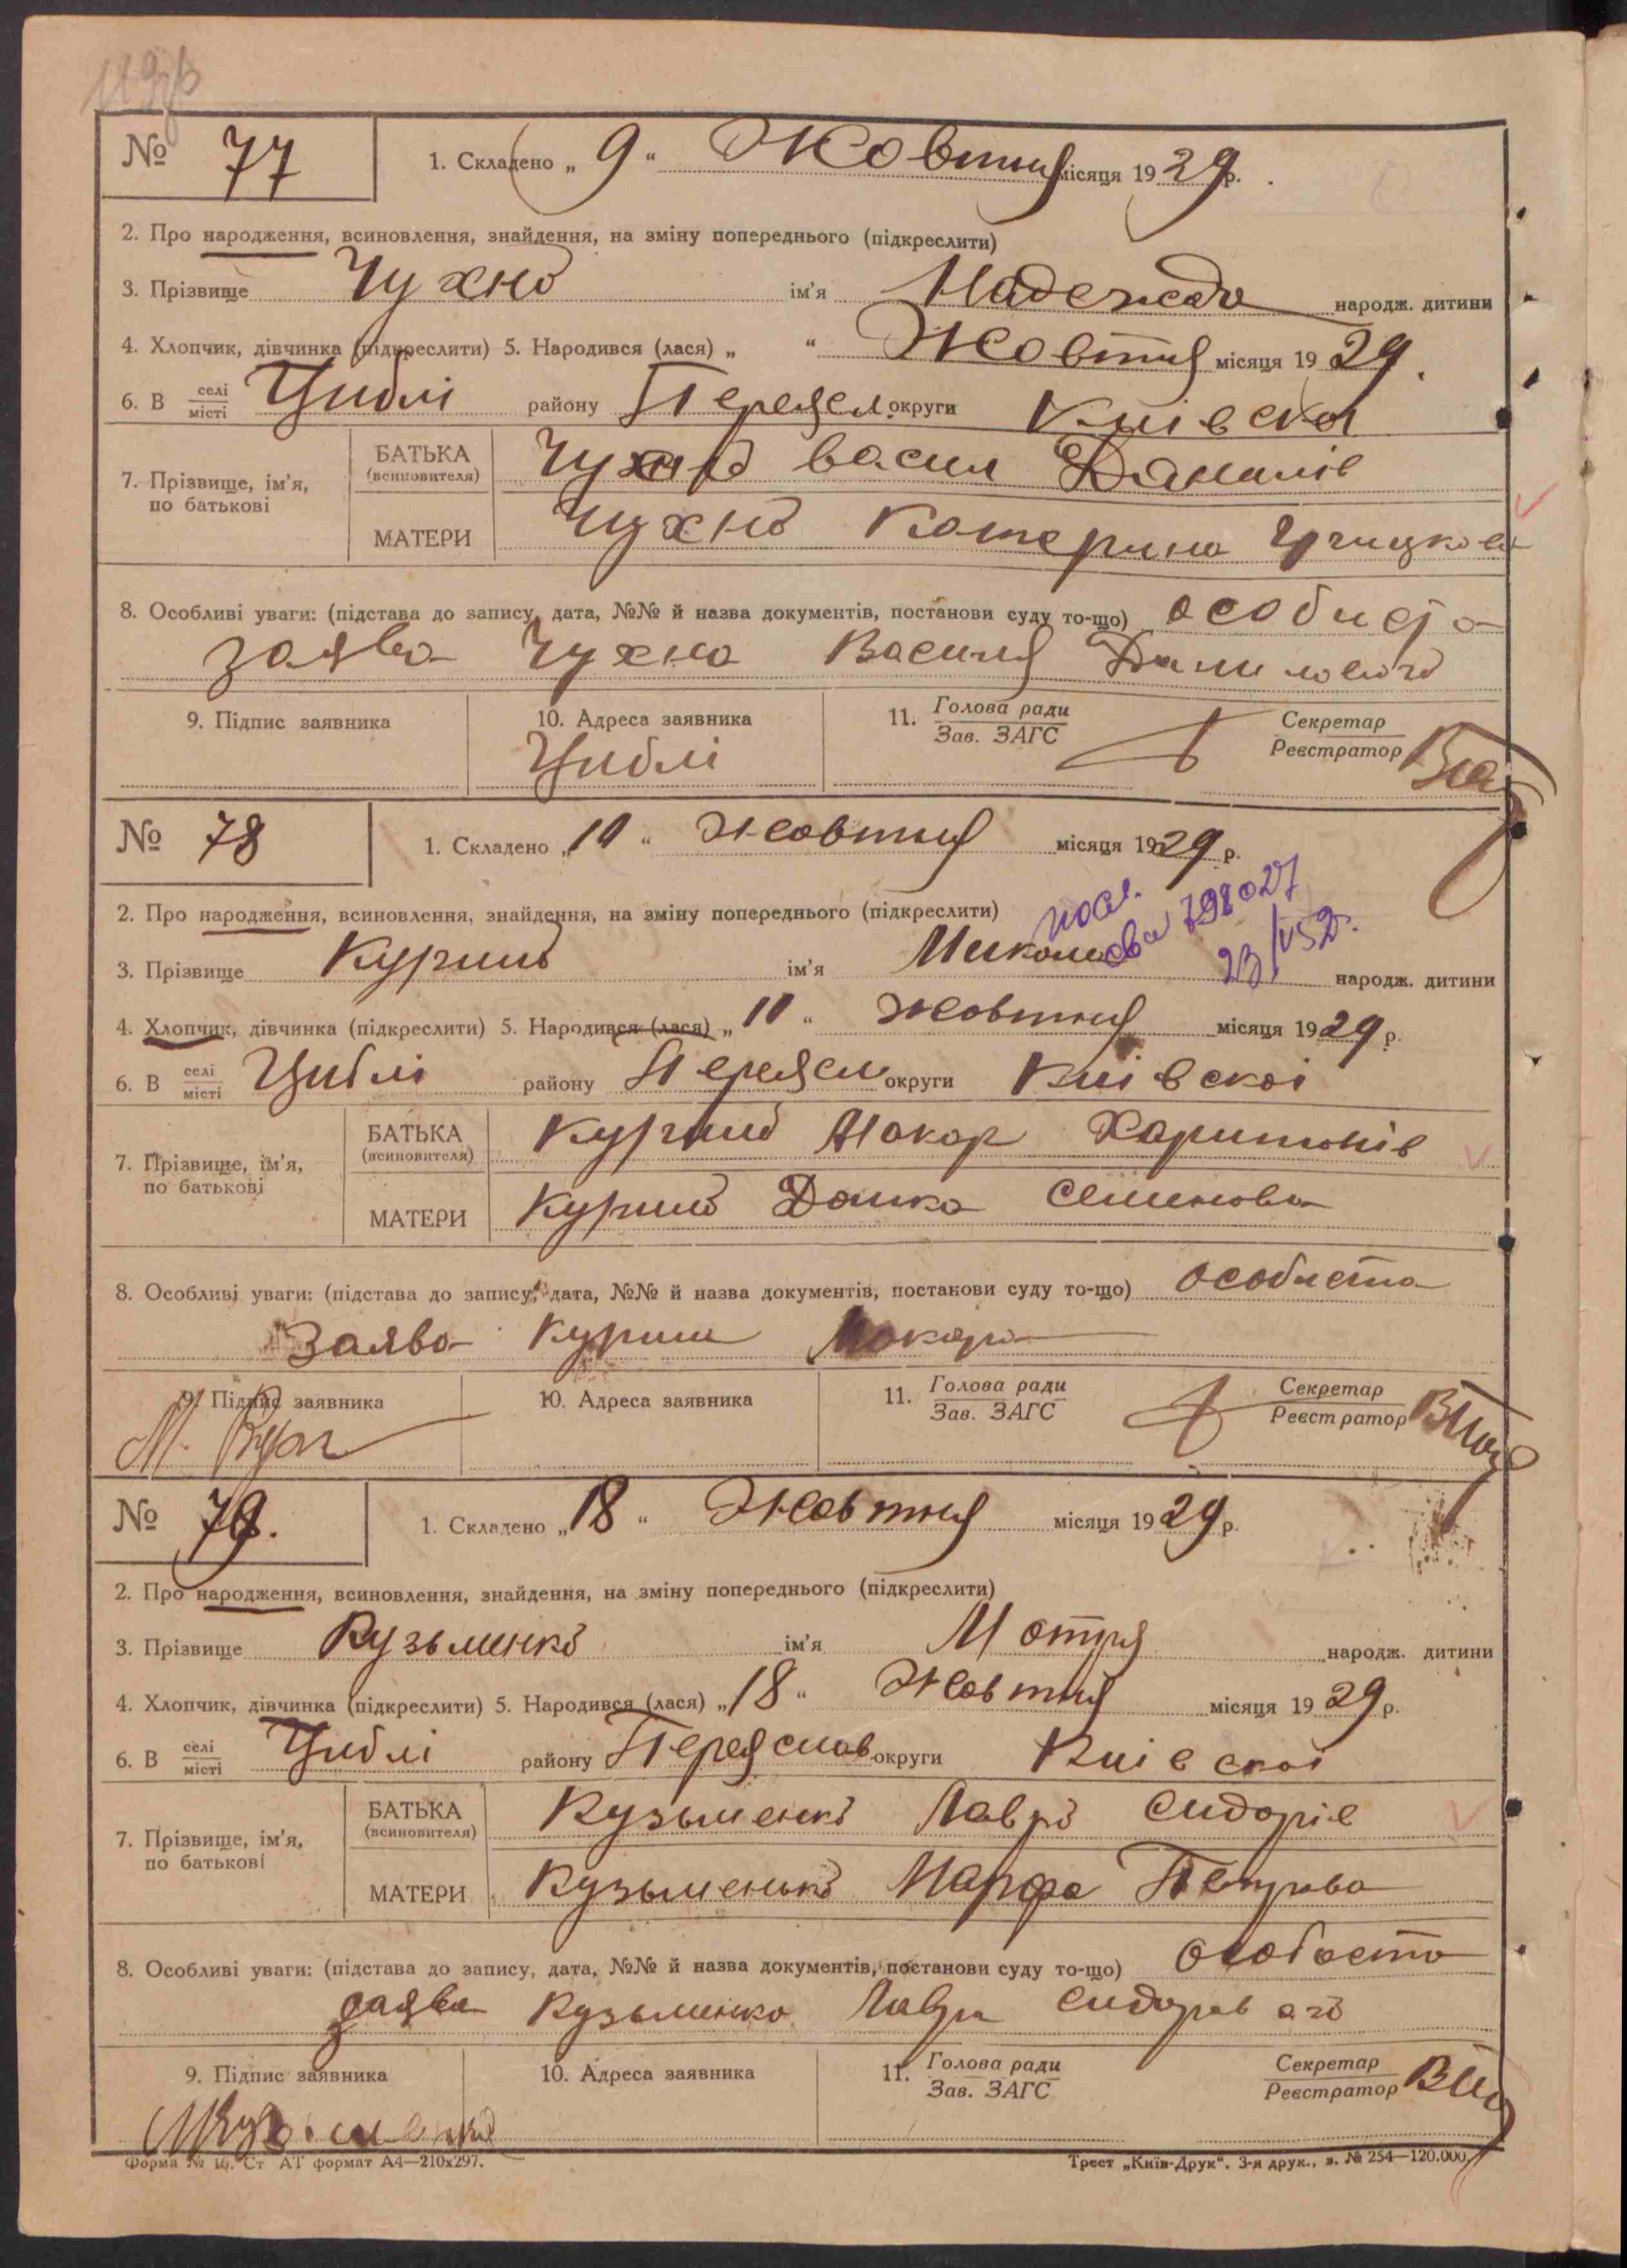 № 77 1. Складено „ 9 “ Жовтня місяця 1929 р.
2. Про народження, всиновлення, знайдення, на зміну попереднього (підкреслити)
3. Прізвище Чухно ім'я Надежда народж. дитини
4. Хлопчик, дівчинка (підкреслити) 5. Народився (лася) „ “ Жовтня місяця 1929
6. В селі місті Циблі району Переясл. округи Киівскоі
7. Прізвище, ім'я, по батькові
БАТЬКА (всиновителя) Чухно Васил Данилів
МАТЕРИ Чухно Катерина
8. Особливі уваги: (підстава до запису, дата, №№ й назва документів, постанови суду то-що) особиста
заява Чухна Василя Данилового
9. Підпис заявника 10. Адреса заявника 11. Голова ради Зав. ЗАГС Секретар Реєстратор
Циблі
№ 78 1. Складено „ 10 “ Жовтня місяця 1929 р.
2. Про народження, всиновлення, знайдення, на зміну попереднього (підкреслити)
3. Прізвище Курило ім'я Микола народж. дитини
798027
4. Хлопчик, дівчинка (підкреслити) 5. Народився (лася) „ 10 “ Жовтня місяця 1929 р.
6. В селі місті Циблі району Переясл округи Киівскоі
7. Прізвище, ім'я, по батькові
БАТЬКА (всиновителя) Курило Макар Харитонів
МАТЕРИ Курило Домка Семенова
8. Особливі уваги: (підстава до запису, дата, №№ й назва документів, постанови суду то-що) особиста
Заява Курила Макара
9. Підпис заявника 10. Адреса заявника 11. Голова ради Зав. ЗАГС Секретар Реєстратор
№ 79. 1. Складено „ 18 “ Жовтня місяця 1929 р.
2. Про народження, всиновлення, знайдення, на зміну попереднього (підкреслити)
3. Прізвище Кузьменко ім'я Мотря народж. дитини
4. Хлопчик, дівчинка (підкреслити) 5. Народився (лася) „ 18 “ Жовтня місяця 1929 р.
6. В селі місті Циблі району Переяслав округи Киівскоі
7. Прізвище, ім'я, по батькові
БАТЬКА (всиновителя) Кузьменко Лавро Сидорів
МАТЕРИ Кузьменько Марфа Петрова
8. Особливі уваги: (підстава до запису, дата, №№ й назва документів, постанови суду то-що) особиста
заява Кузьменко Лавра Сидоравого
9. Підпис заявника 10. Адреса заявника 11. Голова ради Зав. ЗАГС Секретар Реєстратор
Форма № 16. Ст АТ формат А4—210х297. Трест „Київ-Друк“. 3-я друк., з. № 254—120.000.